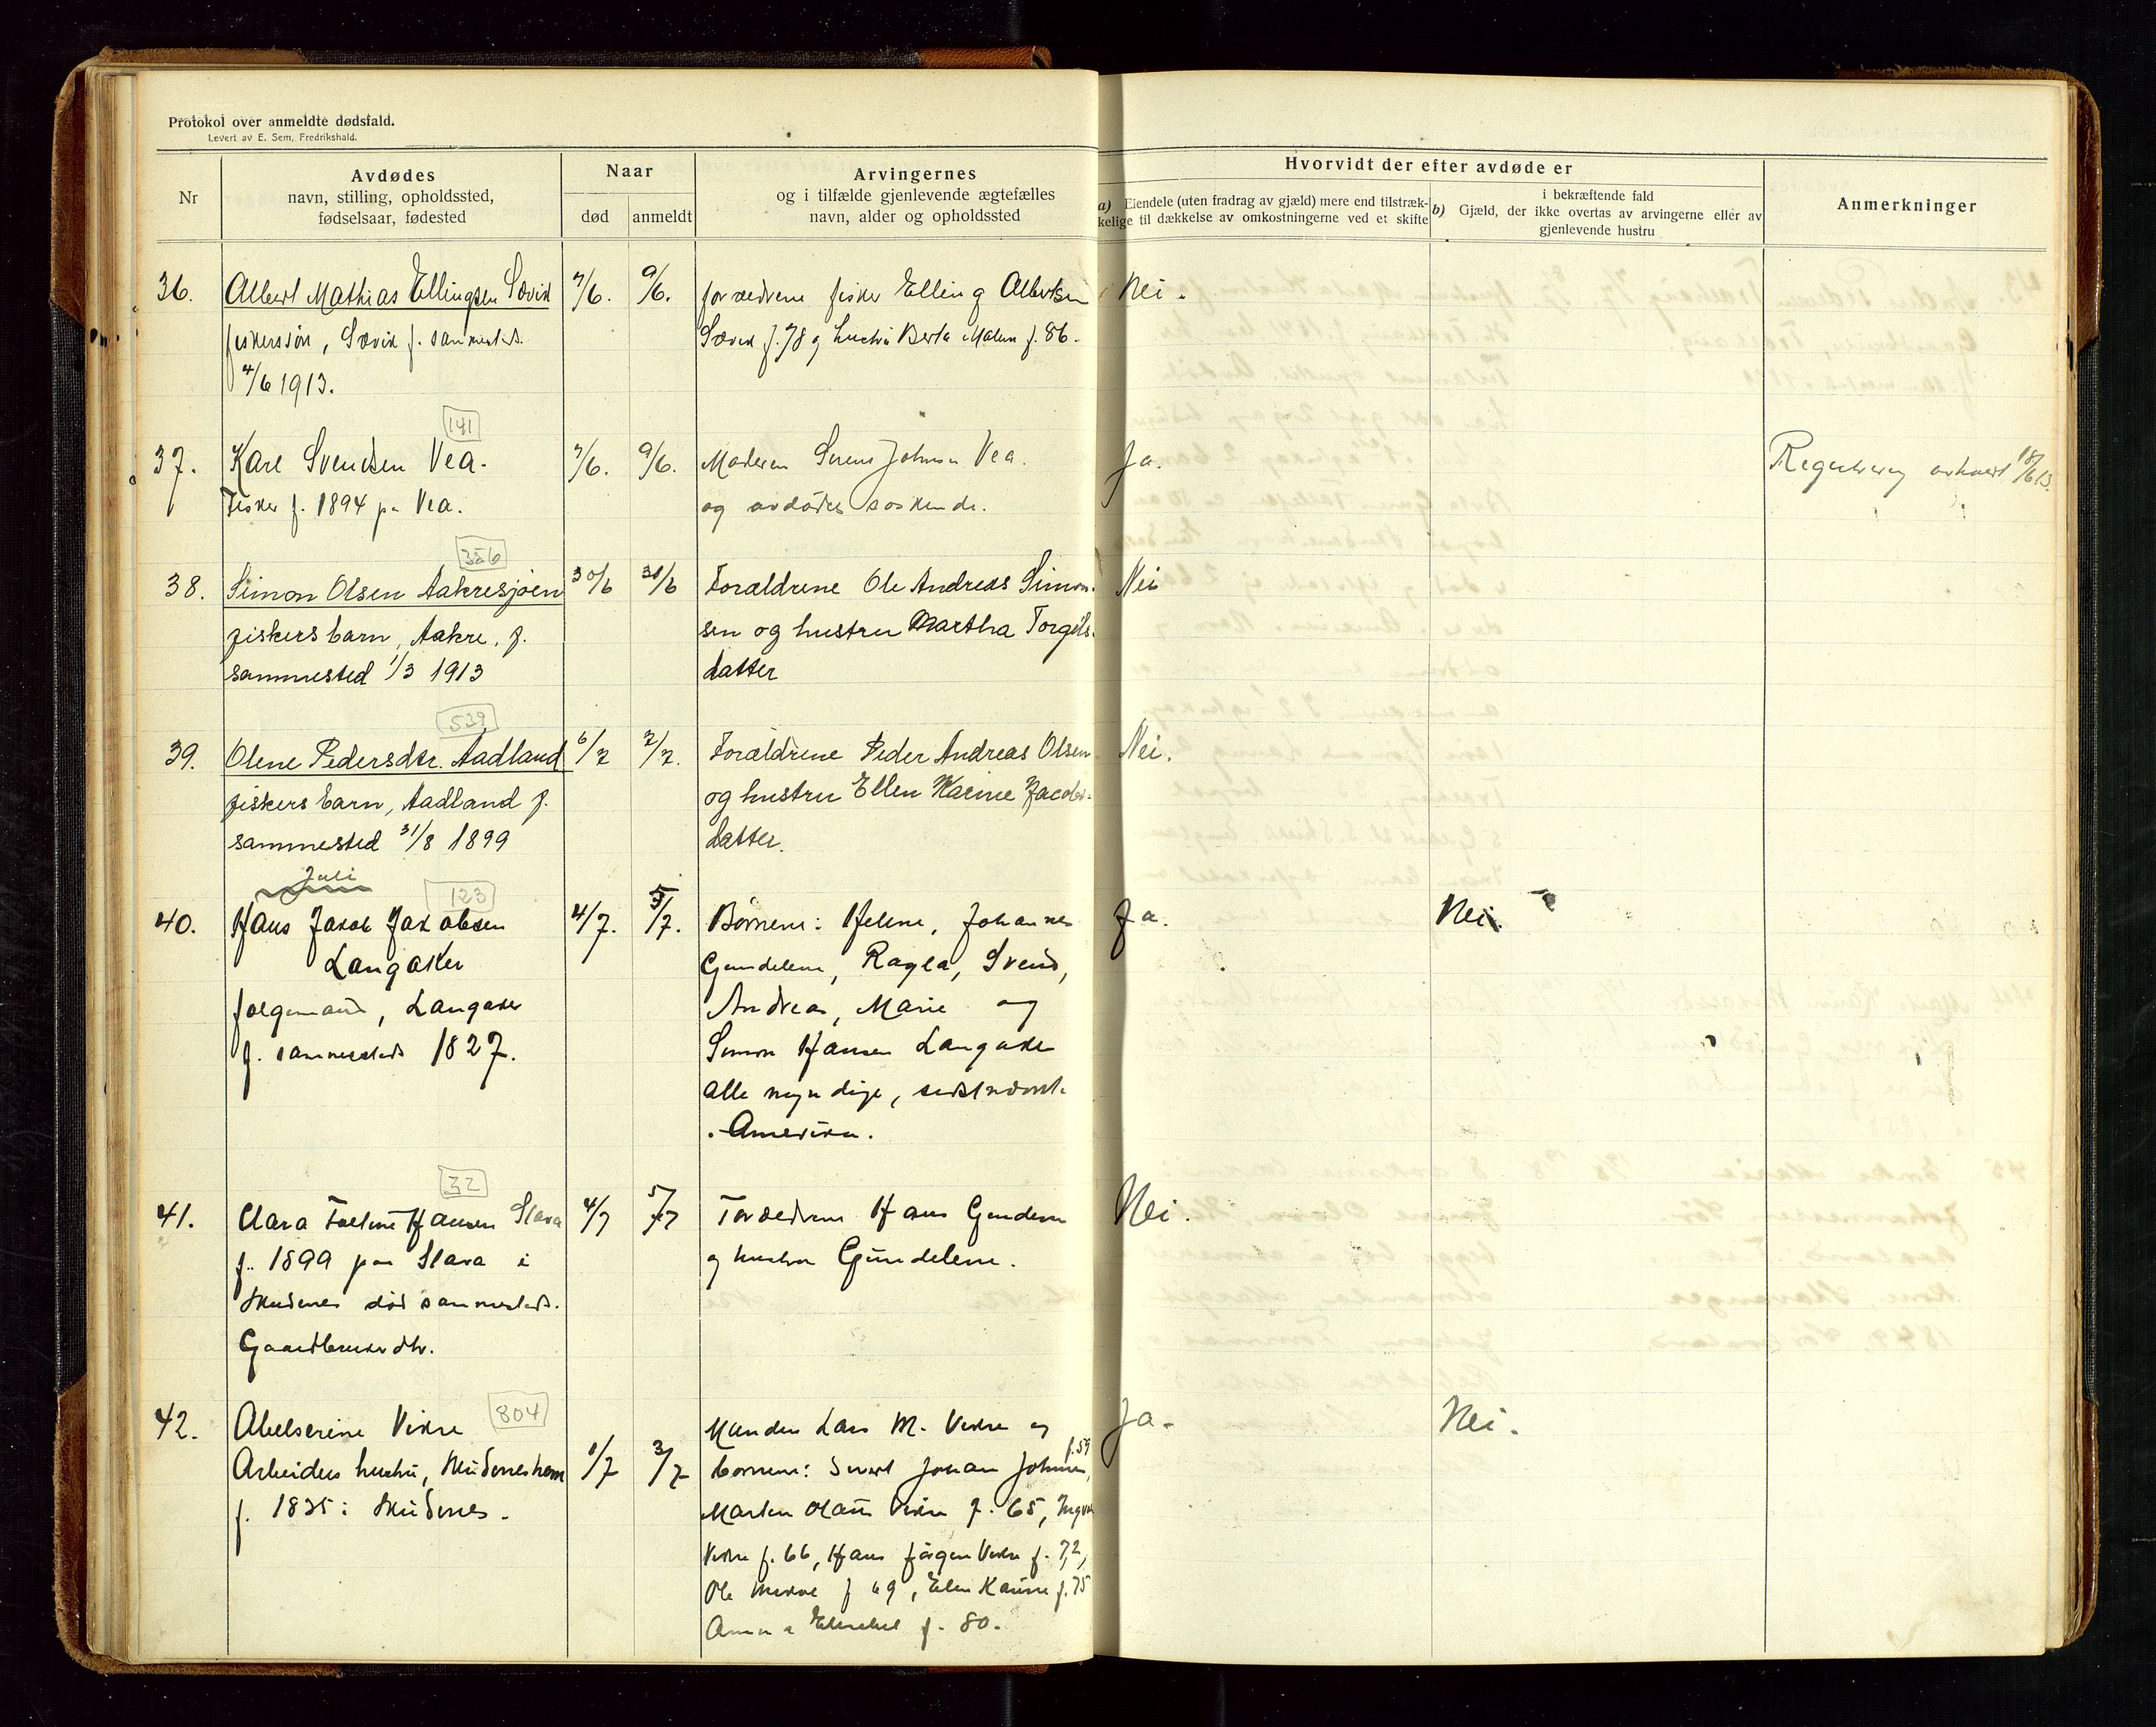 Protokol over anmeldte dødsfald.
Levert av E. Sem, Fredrikshald.
Nr
Avdødes
navn, stilling, opholdssted,
fødselsaar, fødested
Naar
død
anmeldt
Arvingernes
og i tilfælde gjenlevende ægtefælles
navn, alder og opholdssted
Hvorvidt der efter avdøde er
a) Eiendele (uten fradrag av gjæld) mere end tilstræk-
kelige til dækkelse av omkostningerne ved et skifte
i bekræftende fald
b) Gjæld, der ikke overtas av arvingerne eller av
gjenlevende hustru
Anmerkninger
36. Albert Mathias Ellingsen Sævik 7/6. 9/6. forældrene fisker Elling Albertsen Nei.
fiskerssøn, Sævik f. sammesteds. Sævik f. 78 og hustru Berta Malene f. 86.
4/6 1913.
141
37. Kare Svendsen Vea. 7/6. 9/6. Moderen Serene Johnsen Vea. Ja.
Fisker f. 1894 pa Vea. og avdødes søskende.
356
38. Simon Olsen Aakresjøen 30/6 30/6 Forældrene Ole Andreas Simon- Nei
fiskers barn, Aakre, f. sen og hustru Martha Torgils-
sammested 1/3 1913 datter
539
39. Olene Pedersdtr. Aadland 6/7 7/7. Forældrene Peder Andreas Olsen Nei.
fiskers barn, Aadland f. og hustru Ellen Karine Jacobs-
sammested 31/8 1899 datter.
Juli
123
40. Hans Jakob Jakobsen 4/7. 5/7. Børnene: Helene, Johannes Ja. Nei.
Langaker Gundelene, Ragla, Svend,
følgemand, Langaker Andreas, Marie og
f. sammesteds 1827. Simon Hansen Langaker
alle myndige, sidstnævnte
i Amerika.
32
41. Clara Hansen Slava 4/7 5/7 Forældrene Hans Gundersen Nei.
f. 1899 paa Slava i og hustru Gundelene.
Skudenes død sammesteds.
Gaardbruker dtr.
804
42. Abelserine Vikre Manden Lars M. Vikre og Ja. Nei.
Arbeiders hustru, Skudeneshavn 1/7 3/7 børnene: Sivert Johan Johnsen f. 59,
f. 1835 i Skudenes. Marten Olaus Vikre f. 65, Ingvald
Vikre f. 66, Hans Jørgen Vikre f. 72,
Ole f 69, Elen Karine f. 75
Anna Elisabet f. 80.